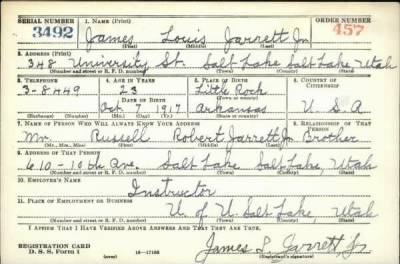 SERIAL NUMBER 1. NAME (Print) ORDER NUMBER
3492 James Louis Jarrett Jr 457
(First) (Middle) (Last)
2. ADDRESS (Print)
348 University St. Salt Lake Salt Lake Utah
(Number and street or R. F. D. number) (Town) (County) (State)
3. TELEPHONE 4. AGE IN YEARS 5. PLACE OF BIRTH 6. COUNTRY OF CITIZENSHIP
3-8449 23 Little Rock
DATE OF BIRTH (Town or county)
Oct. 7 1917 Arkansas U. S. A
(Exchange) (Number) (Mo.) (Day) (Yr.) (State or country)
7. NAME OF PERSON WHO WILL ALWAYS KNOW YOUR ADDRESS 8. RELATIONSHIP OF THAT PERSON
Mr. Russell Robert Jarrett Jr Brother
(Mr., Mrs., Miss) (First) (Middle) (Last)
9. ADDRESS OF THAT PERSON
610-10th Ave. Salt Lake Salt Lake, Utah
(Number and street or R. F. D. number) (Town) (County) (State)
10. EMPLOYER'S NAME
Instructor
11. PLACE OF EMPLOYMENT OR BUSINESS
U. of U. Salt Lake, Utah
(Number and street or R. F. D. number) (Town) (County) (State)
I AFFIRM THAT I HAVE VERIFIED ABOVE ANSWERS AND THAT THEY ARE TRUE.
REGISTRATION CARD
D. S. S. Form 1 (over) 16—17105 James L Jarrett Jr
(Registrant's signature)